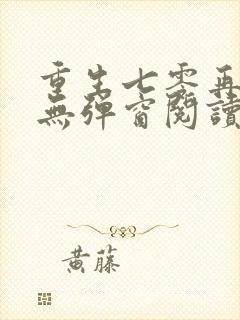 重生七零再
無彈窗閱讀
黄藤